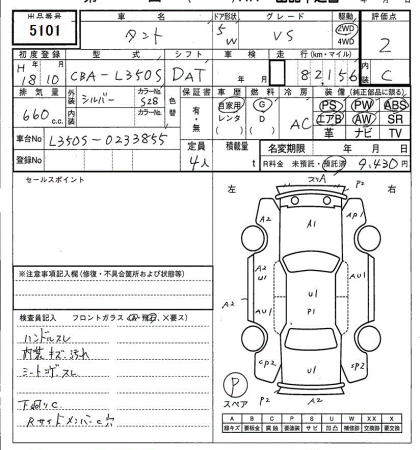 出品番号 車名 ドア形状 グレード 駆動 評価点
5101 タント 5 W VS 2WD 4WD 2
初度登録 型式 シフト 車検 走行(km・マイル)
H 18 10 CBA-L350S DAT 年 月 8 2 1 5 6 C
排気量 外装 シルバー カラーNo. S28 色替 保証書 車歴 燃料 冷房 装備(純正部品に限る)
660 c.c. 内装 カラーNo. 有・無 自家用 レンタ ( ) G D AC PS PW ABS
エアB AW SR
革 ナビ TV
車台No L350S-0233855 定員 積載量 名変期限 年 月 日
登録No 4人 t R料金 未預託・預託済 9,430円
セールスポイント
左 右
スペア
P2
A2 A1 AP1 P2
A2 A2 U1 U1 P1 AU1 AU1
CP2 U1 SP2
P2 A2
※注意事項記入欄(修復・不具合箇所および状態等)
検査員記入 フロントガラス
ハンドルスレ
内装キズ汚れ
シートコゲスレ
下廻りC
RサイドメンバーC穴
P
スペア
A B C P S U W X XX X
線キズ 要板金 腐蝕 要塗装 サビ 凹凸 補修跡 交換跡 要交換